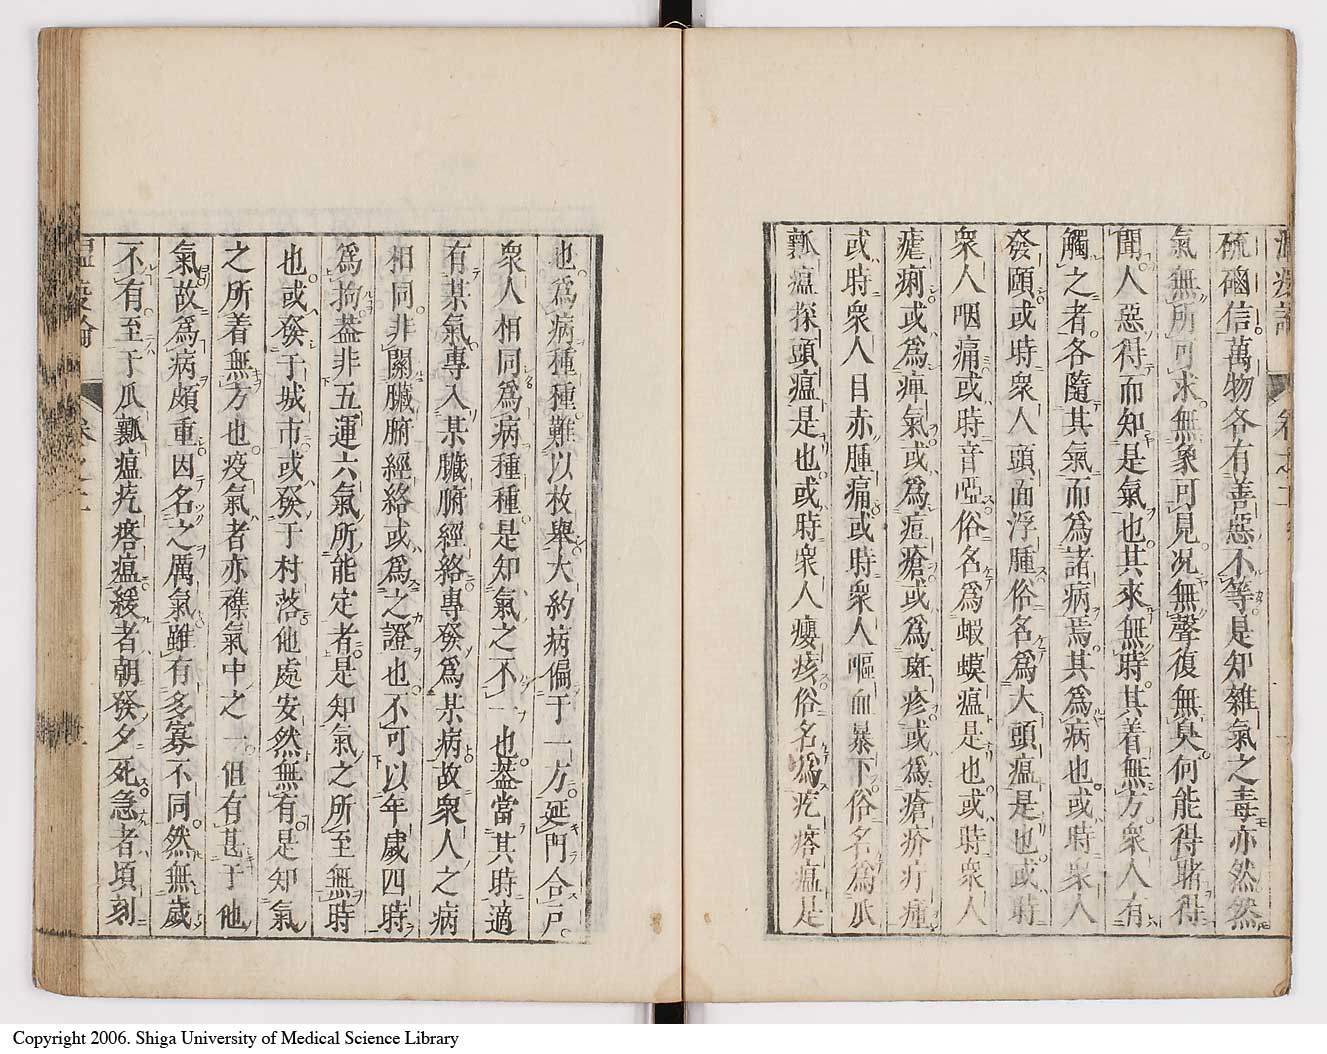 硫磠信萬物各有善惡不等是知雜氣之毒亦然然
氣無所可求無象可見况無聲復無臭何能得睹得
聞人惡得而知是氣也其來無時其着無方衆人有
觸之者各隨其氣而為諸病焉其為病也或時衆人
發頤或時衆人頭面浮腫俗名為大頭瘟是也或時
衆人咽痛或時音啞俗名為蝦蟆瘟是也或時衆人
瘧痢或為痺氣或為痘瘡或為斑疹或為瘡疥疔瘇
或時衆人目赤腫痛或時衆人嘔血暴下俗名為瓜
瓤瘟探頭瘟是也或時衆人癭痎俗名為疙瘩瘟是
也為病種種難以枚舉大約病偏于一方延門合戸
衆人相同為病種種是知氣之不一也葢當其時適
有某氣專入某臟腑經絡專發為某病故衆人之病
相同非關臟腑經絡或為之證也不可以年歲四時
為拘葢非五運六氣所能定者是知氣之所至無時
也或發于城市或發于村落他處安然無有是知氣
之所着無方也疫氣者亦襍氣中之一但有甚于他
氣故為病頗重因名之厲氣雖有多寡不同然無歲
不有至于瓜瓤瘟疙瘩瘟緩者朝發夕死急者頃刻